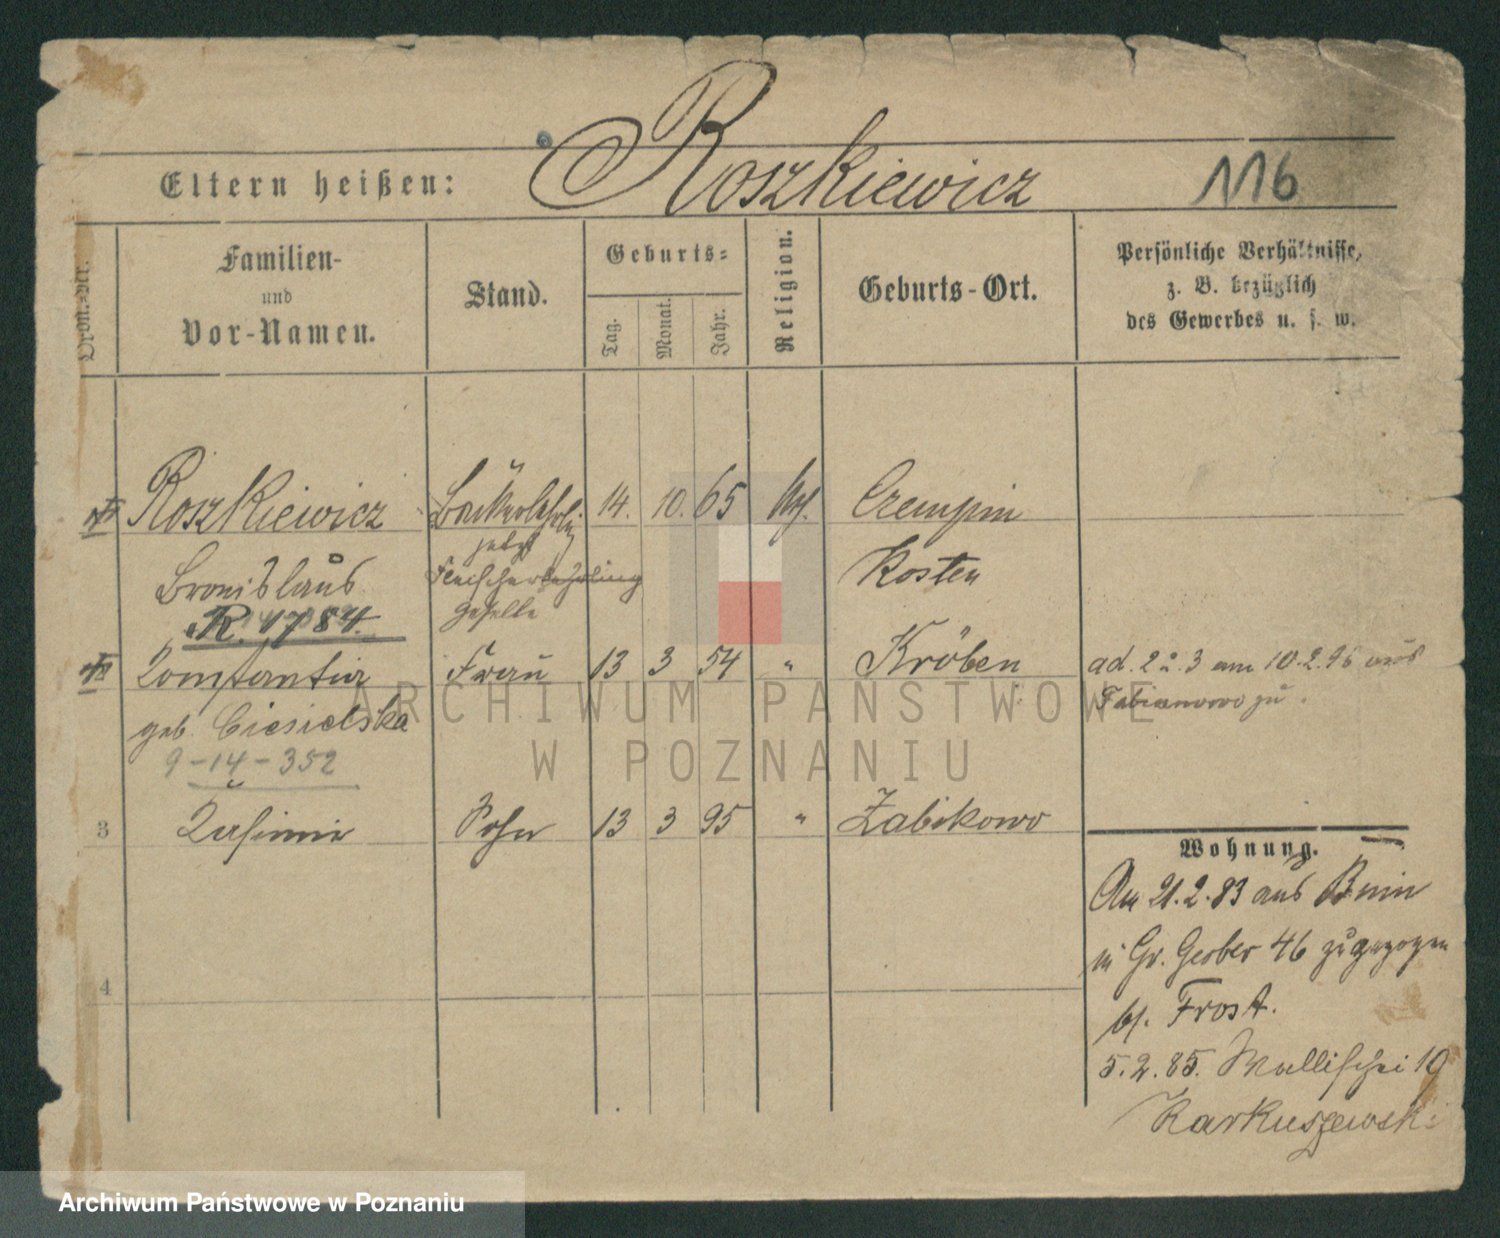 Roszkiewicz
Eltern heißen:
116
Ordn.-Nr.
Familien-
und
Vor-Namen.
Stand.
Geburts-
Tag.
Monat.
Jahr.
Religion.
Geburts-Ort.
Persönliche Verhältnisse,
z. B. bezüglich
des Gewerbes u. s. w.
Roszkiewicz Bäckerlehrlig 14. 10. 65 Czempin
jetzt
Bronislaus Fleischerlehrling Kosten
Geselle
R. 1784.
Constantia Frau 13 3 54 " Kröben ad. 2 u. 3 am 10.2.96 aus
geb. Ciesielska Fabianowo zu.
9-14-352
3 Casimir Sohn 13 3 95 " Żabikowo
Wohnung.
Am 21.2.83 aus Bnin
in Gr. Gerber 46 zugezogen
4
bei Frost.
5.2.85. Wallischei 19
Karkuszewski
ARCHIWUM PAŃSTWOWE
W POZNANIU
Archiwum Państwowe w Poznaniu